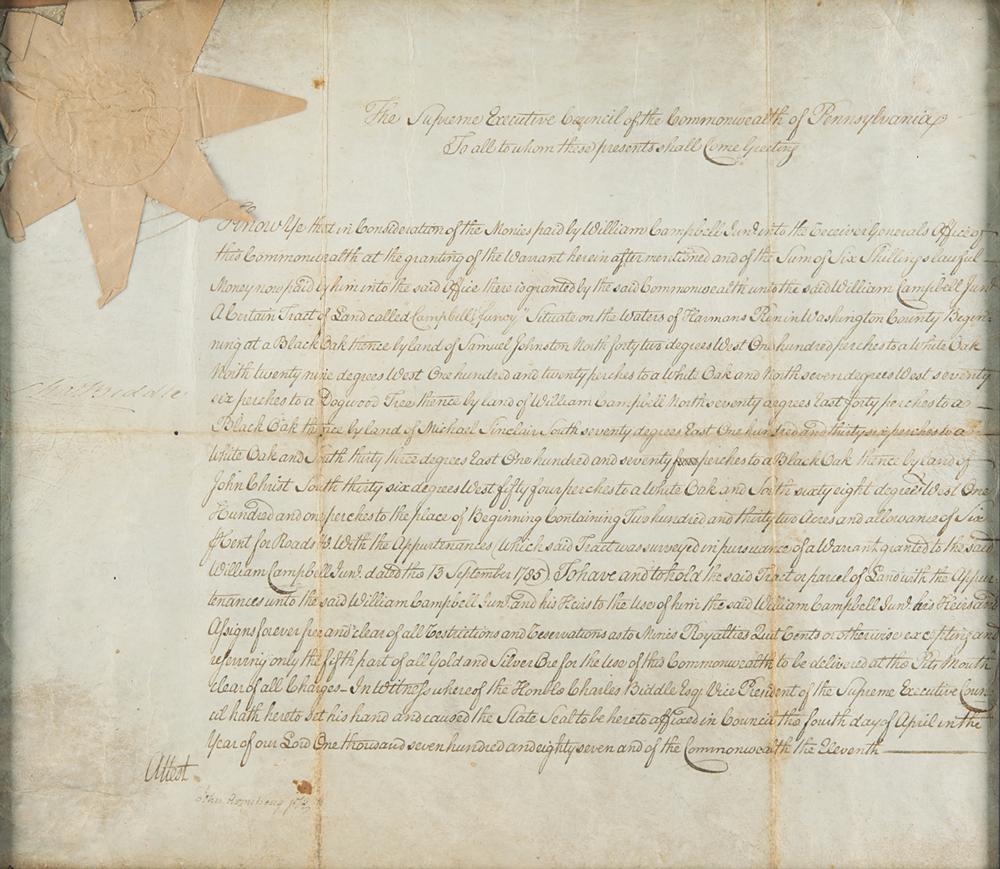 The Supreme Executive Council of the Commonwealth of Pennsylvania
To all to whom these presents shall Come Greeting
Know Ye that in Consideration of the Monies paid by William Campbell Junr. into the Receiver Generals Office of
this Commonwealth at the granting of the Warrant herein after mentioned and of the Sum of Six Shillings lawful
Money now paid by him into the said Office there is granted by the said Commonwealth unto the said William Campbell Junr.
A Certain Tract of Land called "Campbell's" Situate on the Waters of Harmans Run in Washington County Begin-
ning at a Black Oak thence by land of Samuel Johnston North forty two degrees West One hundred perches to a White Oak
North twenty nine degrees West One hundred and twenty perches to a White Oak and North seven degrees West seventy
six perches to a Dogwood Tree thence by land of William Campbell North seventy degrees East forty perches to a
Black Oak thence by land of Michael Sinclair South seventy degrees East One hundred and thirty six perches to a
White Oak and South thirty three degrees East One hundred and seventy perches to a Black Oak thence by land of
John Christ South thirty six degrees West fifty four perches to a White Oak and South sixty eight degrees West One
Hundred and one perches to the place of Beginning Containing Two hundred and thirty two Acres and allowance of Six
⅌ Cent for Roads &c. With the Appurtenances (which said Tract was surveyed in pursuance of a Warrant granted to the said
William Campbell Junr. dated the 13 September 1785) To have and to hold the said Tract or parcel of Land with the Appur-
tenances unto the said William Campbell Junr. and his Heirs to the Use of him the said William Campbell Junr. his Heirs and
Assigns forever free and clear of all Restrictions and Reservations as to Mines Royalties Quit Rents or otherwise excepting and
reserving only the fifth part of all Gold and Silver Ore for the Use of this Commonwealth to be delivered at the Pits Mouth
clear of all Charges – In Witness whereof the Honble Charles Biddle Esqr. Vice President of the Supreme Executive Coun-
cil hath hereto set his hand and caused the State Seal to be hereto affixed in Council the fourth day of April in the
Year of our Lord One thousand seven hundred and eighty seven and of the Commonwealth the Eleventh
Chas Biddle
Attest
John Armstrong